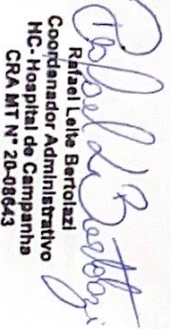 Rafael L Bertolazi
Rafael Leite Bertolazi
Coordenador Administrativo
HC- Hospital de Campanha
CRA MT N° 20-08643